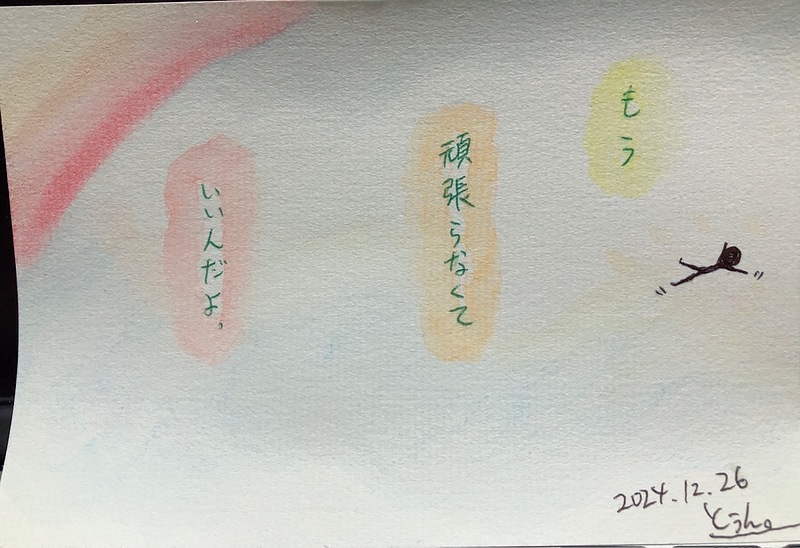 もう
頑張らなくて
いいんだよ。
2024.12.26